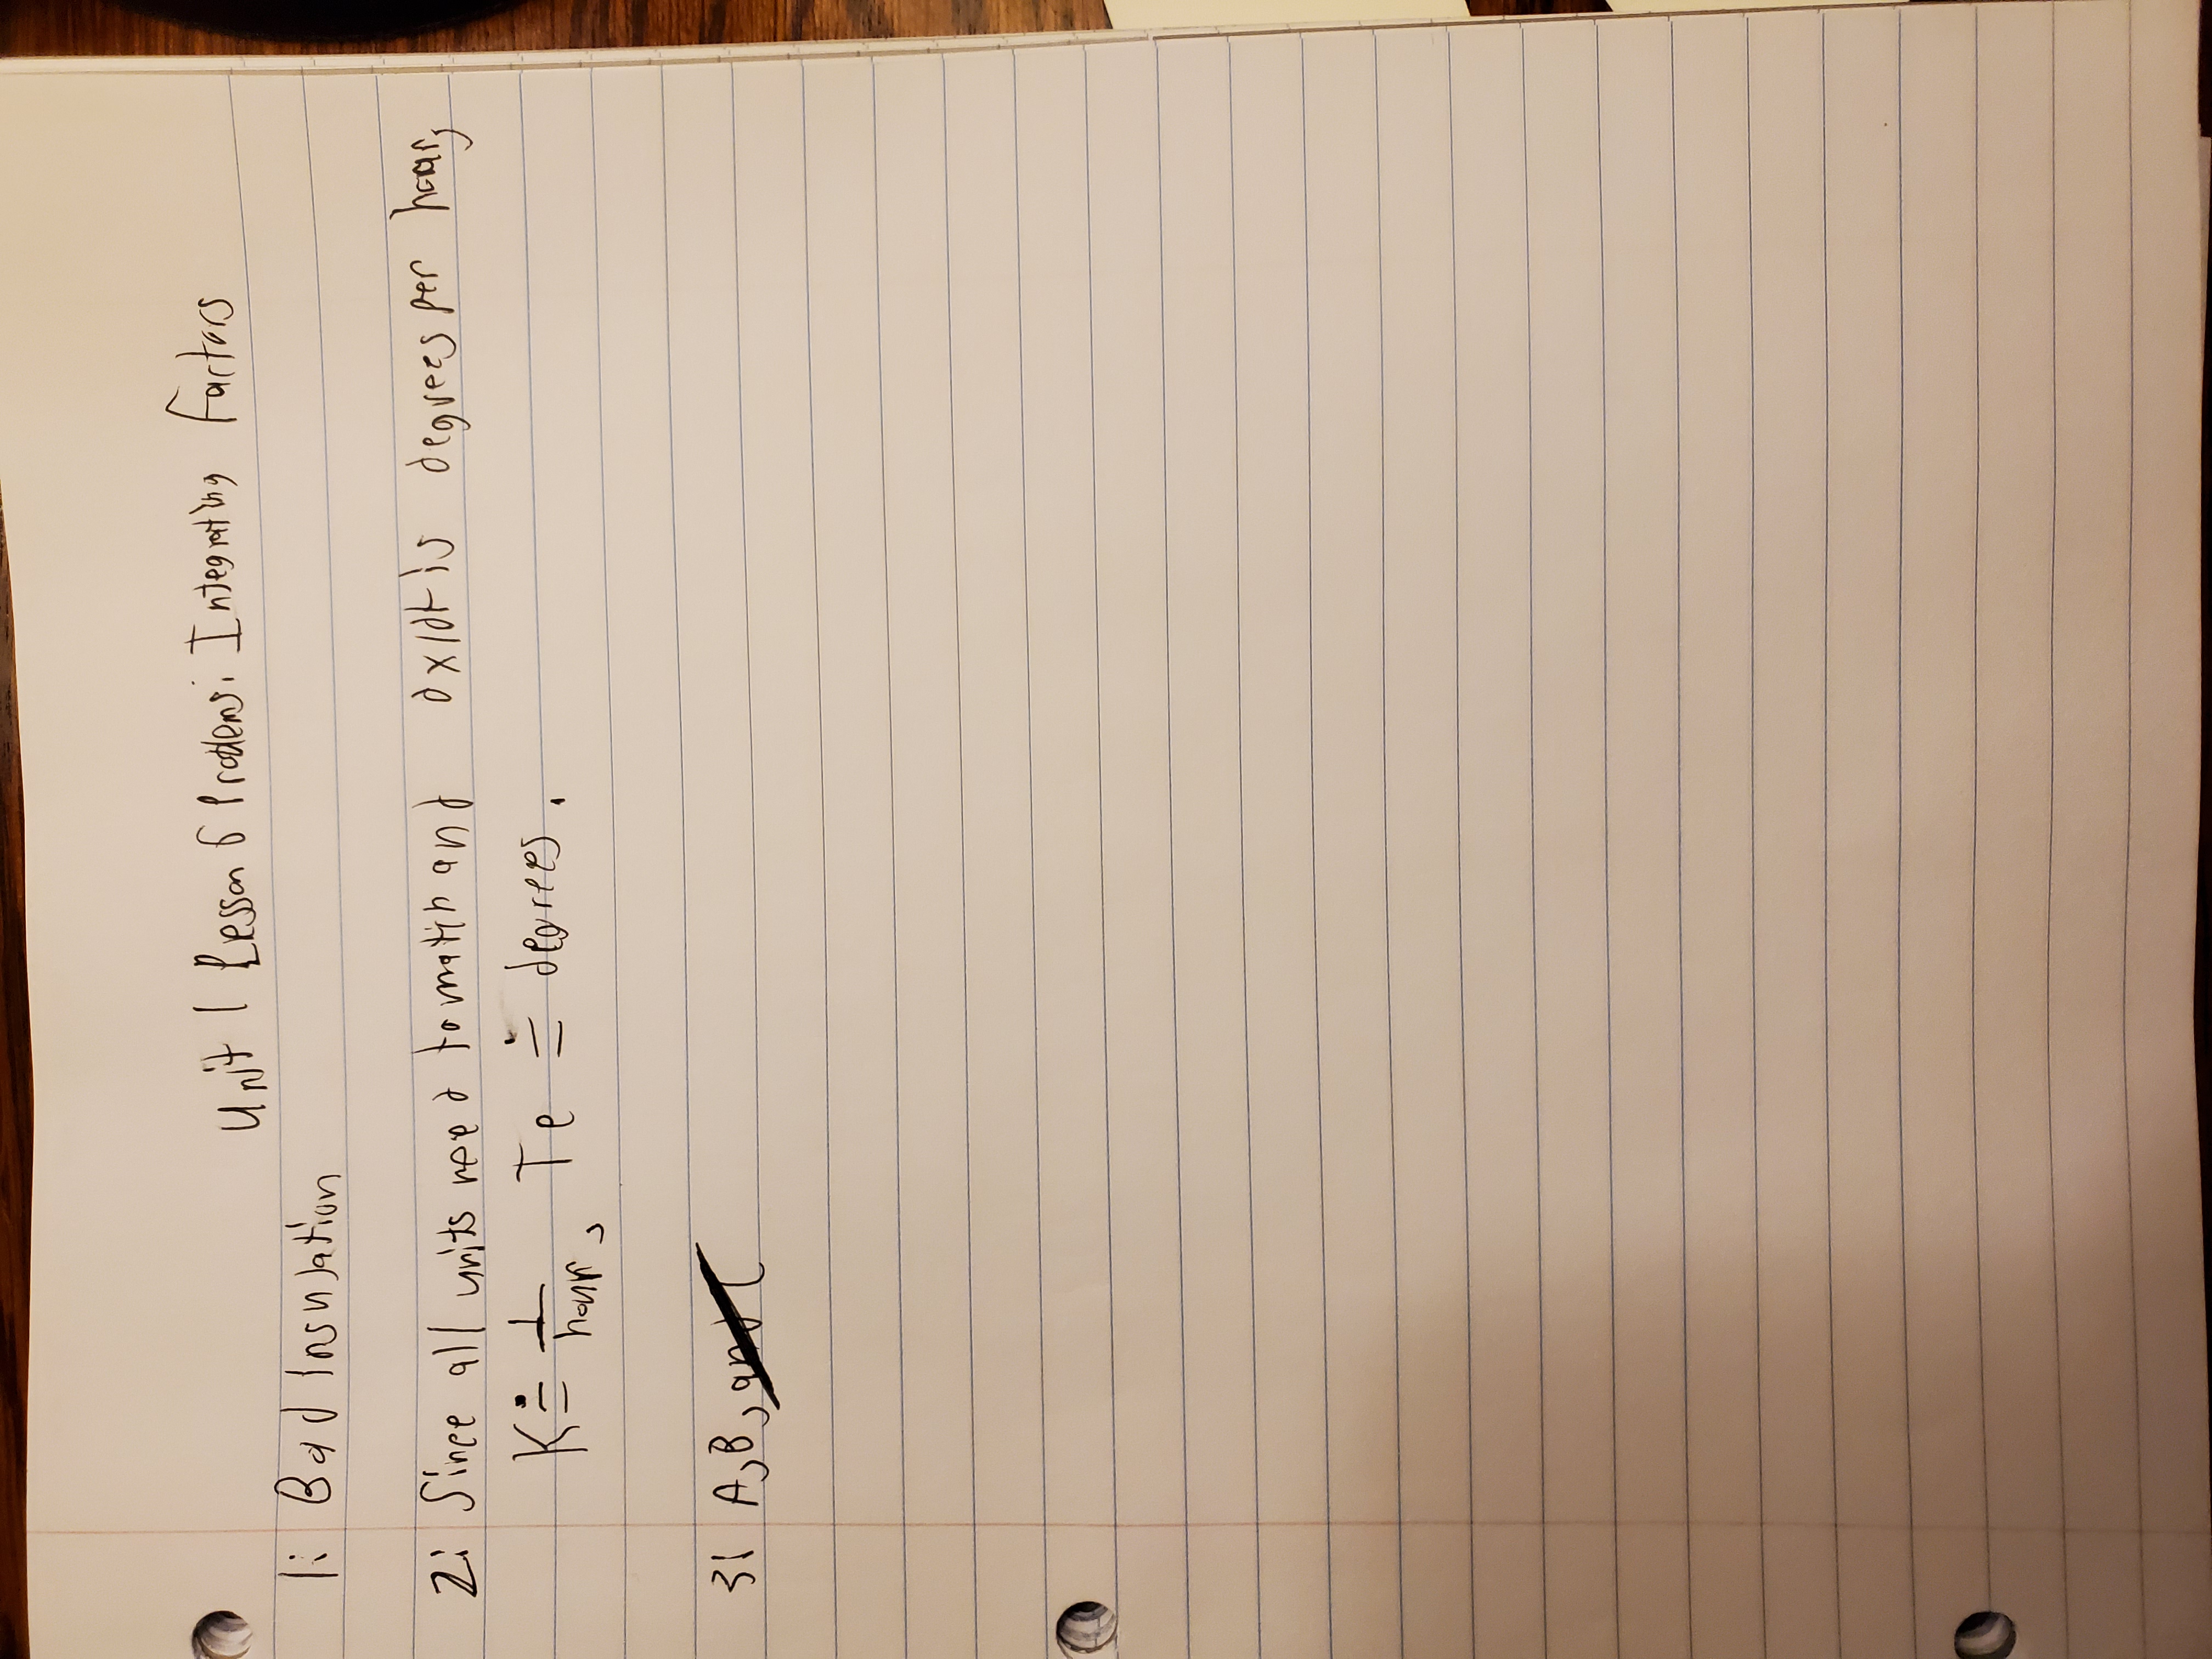 Unit 1 Lesson 6 Problems: Integrating Factors
1: Bad Insulation
2: Since all units need to match and dx/dt is degrees per hour,
K ≐ 1/hour, Te ≐ degrees.
3: A, B, and C